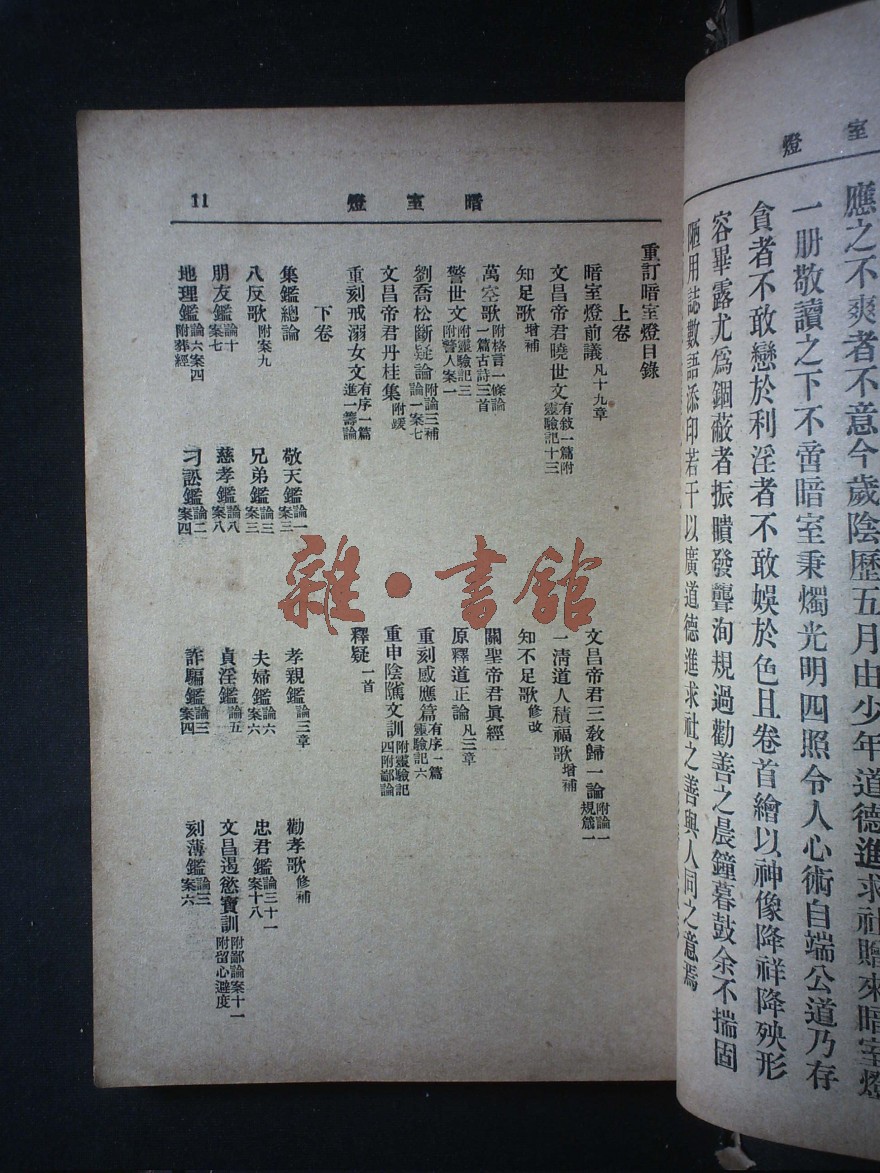 室燈
應之不爽者不意今歲陰歷五月由少年道德進求社贈來暗室燈
一册敬讀之下不啻暗室秉燭光明四照令人心術自端公道乃存
貪者不敢戀於利淫者不敢娛於色且卷首繪以神像降祥降殃形
容畢露尤爲錮蔽者振瞶發聾洵規過勸善之晨鐘暮鼓余不揣固
陋用誌數語添印若干以廣道德進求社之善與人同之意焉
暗室燈
11
重訂暗室燈目錄
上卷
暗室燈前議凡十九章
文昌帝君三敎歸一論附論一規箴一
文昌帝君曉世文有敘一篇附靈驗記十三
一淸道人積福歌增補
知足歌增補
知不足歌修改
萬空歌附格言一條論一篇古詩三首
關聖帝君眞經
警世文附靈驗記三附警人案一
原釋道正論凡三章
劉喬松斷疑論附論三補論一案七
重刻感應篇有序一篇附靈驗記六
文昌帝君丹桂集附緩
重申陰隲文訓附靈驗記四附鄙論
重刻戒溺女文有序一篇進一籌論
釋疑一首
下卷
集鑑總論
敬天鑑論一案三
孝親鑑論三章
勸孝歌修補
八反歌附案九
兄弟鑑論三案三
夫婦鑑論六案六
忠君鑑論三十一案十八
朋友鑑論十案七
慈孝鑑論八案八
貞淫鑑論五
文昌遏慾寶訓附鄙論案十一附留心避度
地理鑑論六案四附葬經
刁訟鑑論二案四
詐騙鑑論三案四
刻薄鑑論三案六
雜·書館